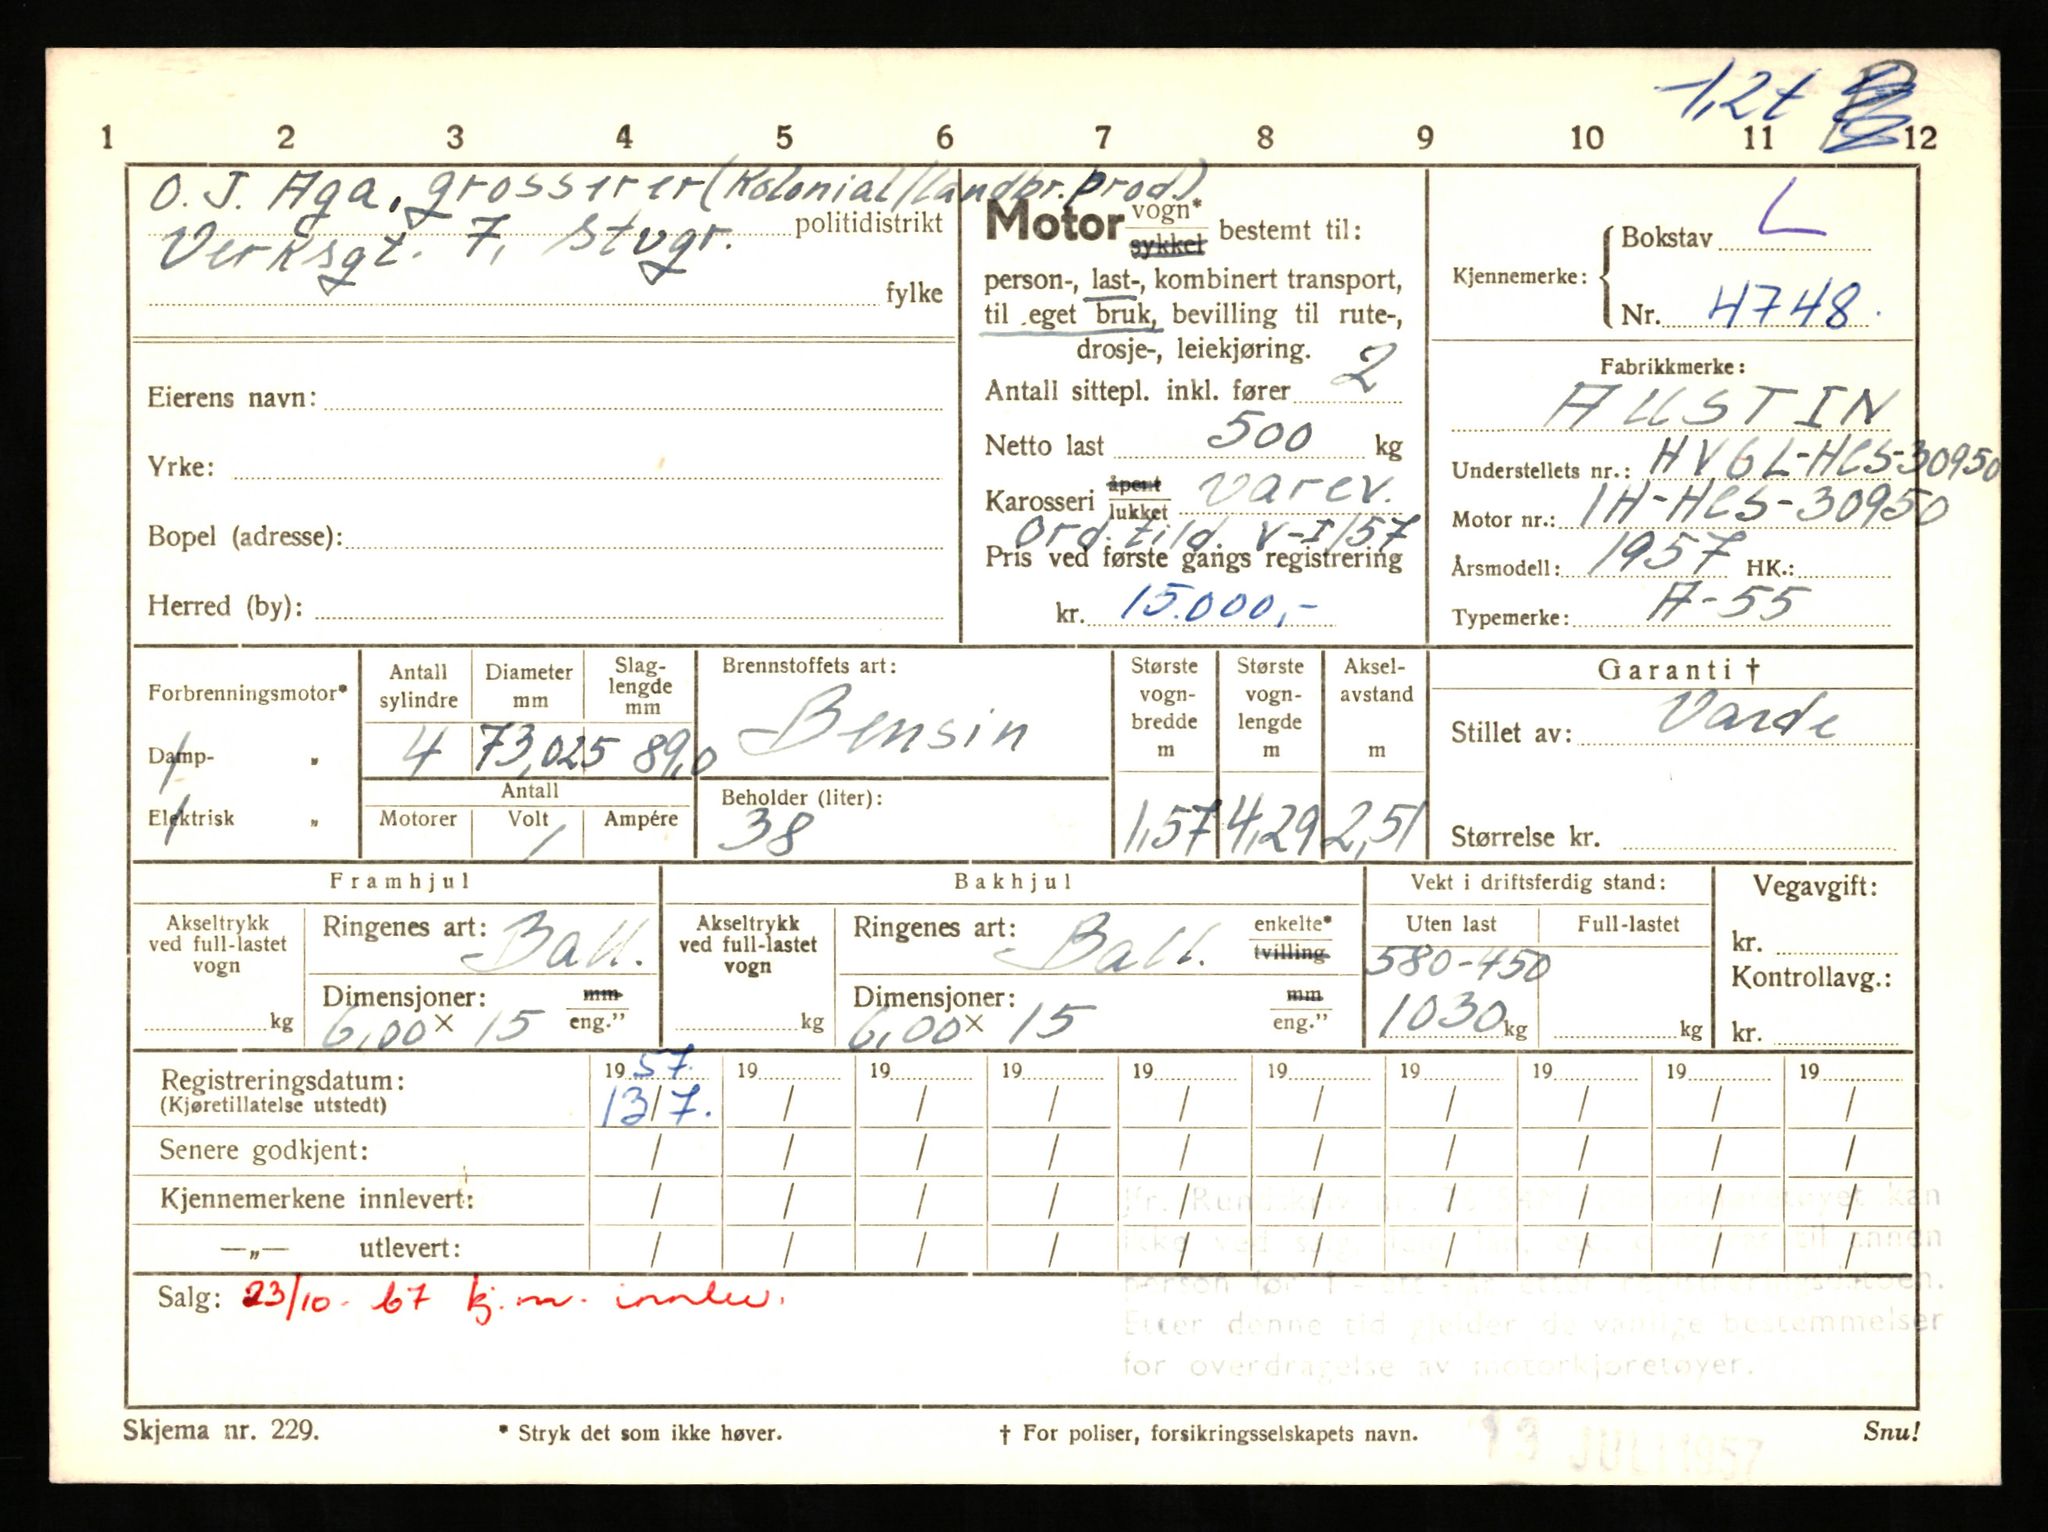 1,2t
1 2 3 4 5 6 7 8 9 10 11 12
O. J. Aga, grosserer (Kolonial/landbr.prod.)
politidistrikt
Verksgt. 7, Stvgr.
fylke
Eierens navn:
Yrke:
Bopel (adresse):
Herred (by):
Motor vogn* sykkel bestemt til:
person-, last-, kombinert transport,
til eget bruk, bevilling til rute-,
drosje-, leiekjøring.
Antall sittepl. inkl. fører 2
Netto last 500 kg
Karosseri åpent lukket varev.
Ord. tild. V-I/57
Pris ved første gangs registrering
kr. 15.000,-
Kjennemerke: Bokstav L
Nr. 4748.
Fabrikkmerke:
AUSTIN
Understellets nr.: HV6L-HCS-30950
Motor nr.: 1H-HCS-30950
Årsmodell: 1957 HK.:
Typemerke: A-55
Forbrenningsmotor*
Damp- "
Elektrisk "
Antall sylindre
Diameter mm
Slag-
lengde
mm
4 73,025 89,0
Antall
Motorer Volt Ampére
Brennstoffets art:
Bensin
Beholder (liter):
38
Største
vogn-
bredde
m
1,57
Største
vogn-
lengde
m
4,29
Aksel-
avstand
m
2,51
Garanti †
Stillet av: Varde
Størrelse kr.
Framhjul
Akseltrykk
ved full-lastet
vogn
kg
Ringenes art: Ball.
Dimensjoner: mm
6,00 x 15 eng."
Bakhjul
Akseltrykk
ved full-lastet
vogn
kg
Ringenes art: Ball. enkelte* tvilling
Dimensjoner: mm
6,00 x 15 eng."
Vekt i driftsferdig stand:
Uten last Full-lastet
580-450
1030 kg kg
Vegavgift:
kr.
Kontrollavg.:
kr.
Registreringsdatum: 19 57. 19 19 19 19 19 19 19 19 19
(Kjøretillatelse utstedt) 13/7. / / / / / / / / /
Senere godkjent: / / / / / / / / / /
Kjennemerkene innlevert: / / / / / / / / / /
—„— utlevert: / / / / / / / / / /
Salg: 23/10-67 kj.m. innlev.
Etter denne tid gjelder de vanlige bestemmelser
for overdragelse av motorkjøretøyer.
Skjema nr. 229. * Stryk det som ikke høver. † For poliser, forsikringsselskapets navn. Snu!
13 JULI 1957